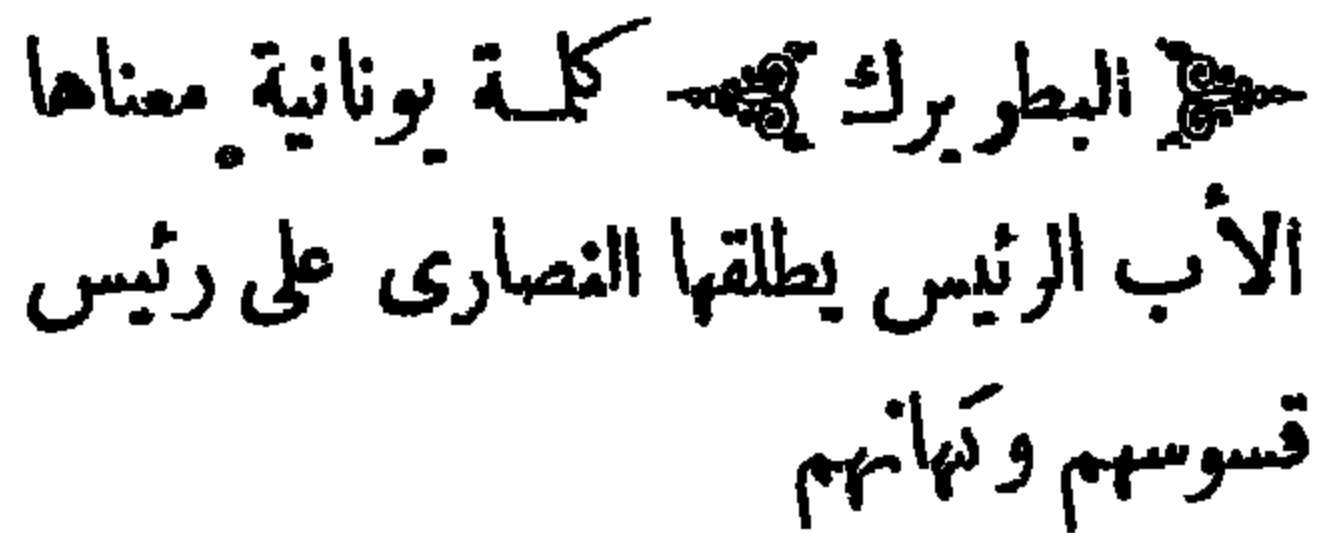 ﴿ البطويرك ﴾ كلمة يونانية معناها
الأب الرئيس يطلقها النصارى على رئيس
قسوسهم وكهانهم